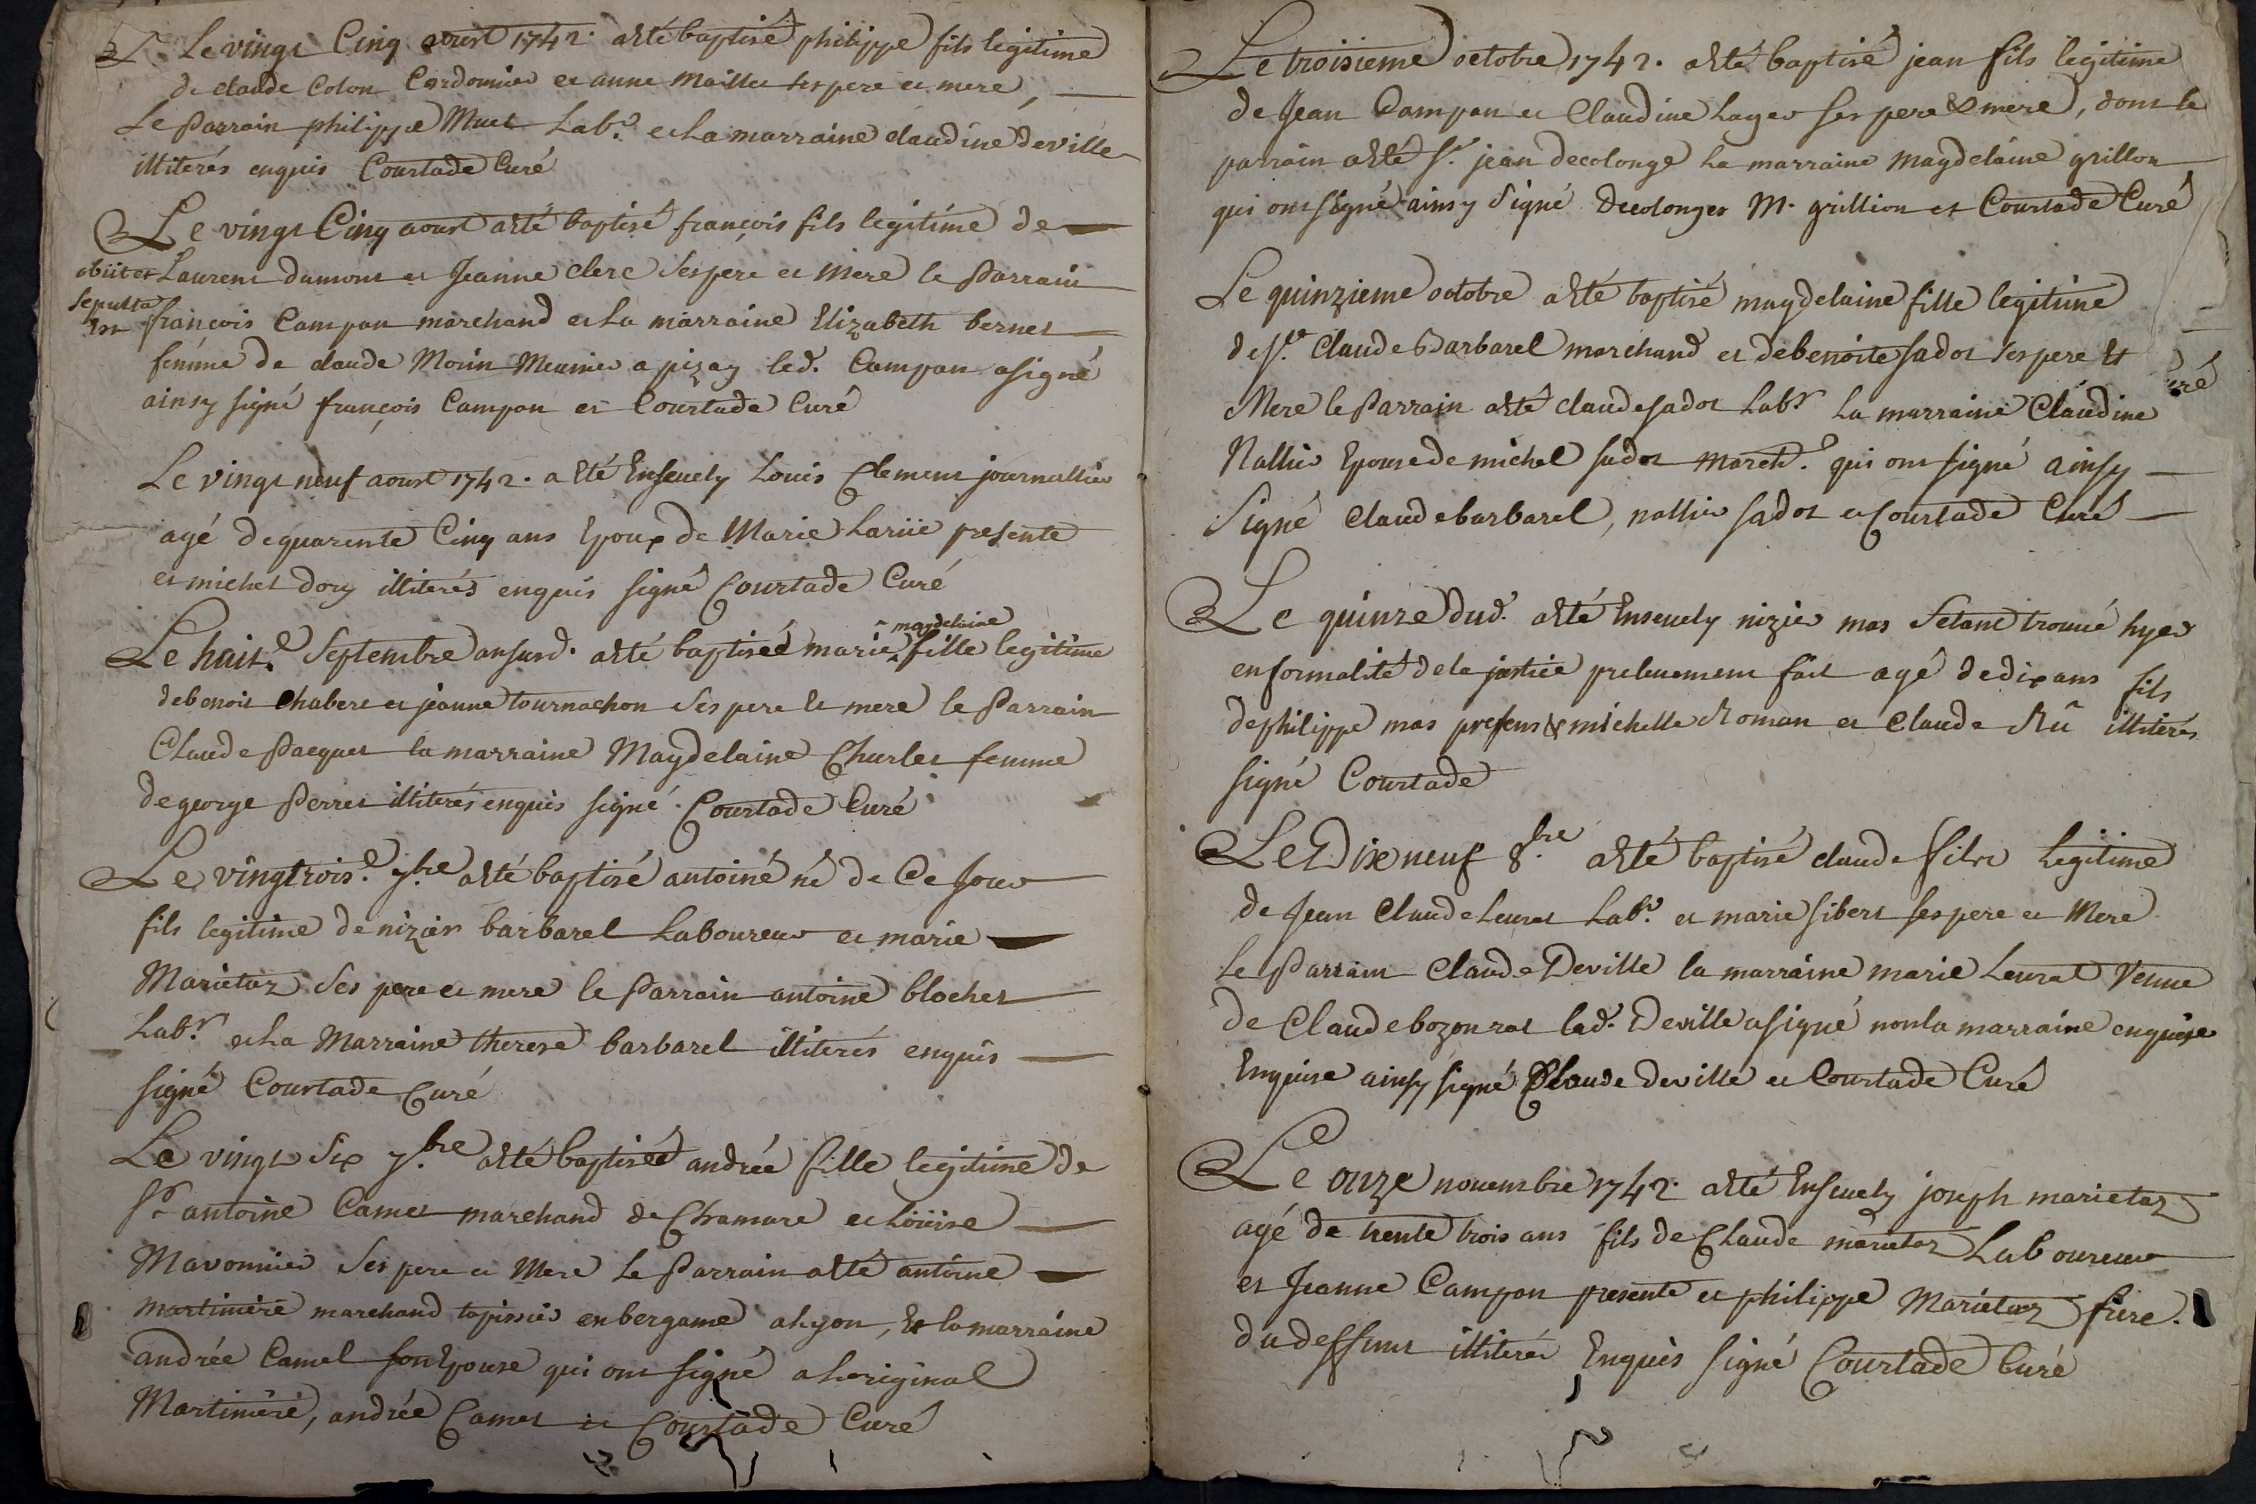 Le vingt Cinq aoust 1742. a été baptisé philippe fils legitime
de claude Colon Cordonnier et anne Maillet ses pere et mere,
Le Parrain philippe Muet Labr. et La marraine claudine deville
illiterés enquis Courtade Curé
Le vingt Cinq aoust a été baptisé françois fils legitime de
Laurent dumont et Jeanne clerc ses pere et mere le Parrain
obiit et
sepultus
est
françois Campan marchand et La marraine Elizabeth bernet
femme de claude Morin Meunier a pizay led. Campan a signé
ainsy signé françois Campan et Courtade Curé
Le vingt neuf aoust 1742. a Eté Ensevely Louis Clement journallier
agé de quarente Cinq ans Epoux de Marie Lariie presente
et michel dory illiterés enquis signé Courtade Curé
Le huite. Septembre an susd. a été baptiséé marie magdelaine fille legitime
de benoit Chabert et jeanne tournachon ses pere et mere le Parrain
Claude Pacquet la marraine Magdelaine Charlet femme
de george Perret illiterés enquis signé. Courtade Curé
Le vingtroise. 7bre a été baptisé antoine né de Ce Jour
fils legitime de nizier barbarel Laboureur et marie
Marietaz ses pere et mere le Parrain antoine blochet
Labr. et La Marraine therese barbarel illiterés enquis
signé Courtade Curé
Le vingt Six 7bre a été baptiséé andrée fille legitime de
Sr. antoine Camet marchand de Chamare et Loüise
Mavonnier Ses pere et Mere Le Parrain a été antoine
martiniere marchand tapissier en bergame a Lyon, Et la marraine
andrée Camel son Epouse qui ont signé a Loriginal
Martiniere, andrée Camet et Courtade Curé
Le troisieme octobre 1742. a été baptisé jean fils legitime
de Jean Campan et Claudine Lager ses pere & mere, dont le
parrain a été Sr. jean decolonge La marraine magdelaine grillon
qui ont signé ainsy signé decolonges M. grillion et Courtade Curé
Le quinzieme octobre a été baptisé magdelaine fille legitime
de Sr. Claude Barbarel marchand et de benoite sadot ses pere Et
Mere le Parrain a été claude sadot Labr La marraine Claudine
Nallier Epouse de michel sadot march. qui ont signé ainsy
Signé Claude barbarel, nallier sadot et Courtade Curé
Le quinze dud. a été Ensevely nizier mas S'etant trouvé hyer
en formalité de la justice prelevement fait agé de dix ans fils
de philippe mas present & michelle Roman et Claude Rû illiterés
signé Courtade
Le Dixneuf 8bre a été baptisé claude fils legitime
de Jean Claude Leurat Labr. et marie sibert ses pere et Mere
Le Parrain Claude Deville la marraine marie Leurat Veuve
de Claude bozonrat led. Deville a signé non la marraine enquise
Enquise ainsy signé Claude deville et Courtade Curé
Le onze novembre 1742. a été Ensevely joseph marietaz
agé de trente trois ans fils de Claude marietaz Laboureur
et Jeanne Campan presente et philippe Marietaz frere.
du deffunt illiterés Enquis signé Courtade Curé